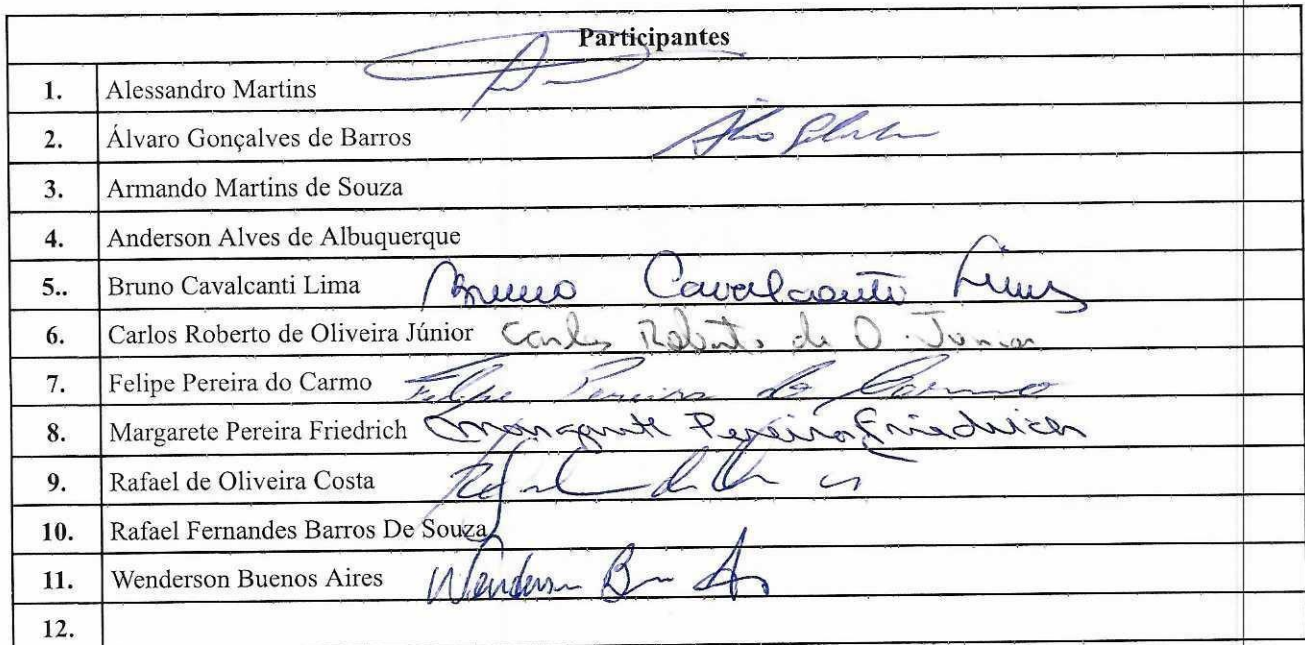 Participantes
1. Alessandro Martins
2. Álvaro Gonçalves de Barros
3. Armando Martins de Souza
4. Anderson Alves de Albuquerque
5.. Bruno Cavalcanti Lima Bruno Cavalcanti Lima
6. Carlos Roberto de Oliveira Júnior Carlos Roberto de O. Junior
7. Felipe Pereira do Carmo Felipe Pereira do Carmo
8. Margarete Pereira Friedrich Margarete Pereira Friedrich
9. Rafael de Oliveira Costa
10. Rafael Fernandes Barros De Souza
11. Wenderson Buenos Aires Wenderson
12.